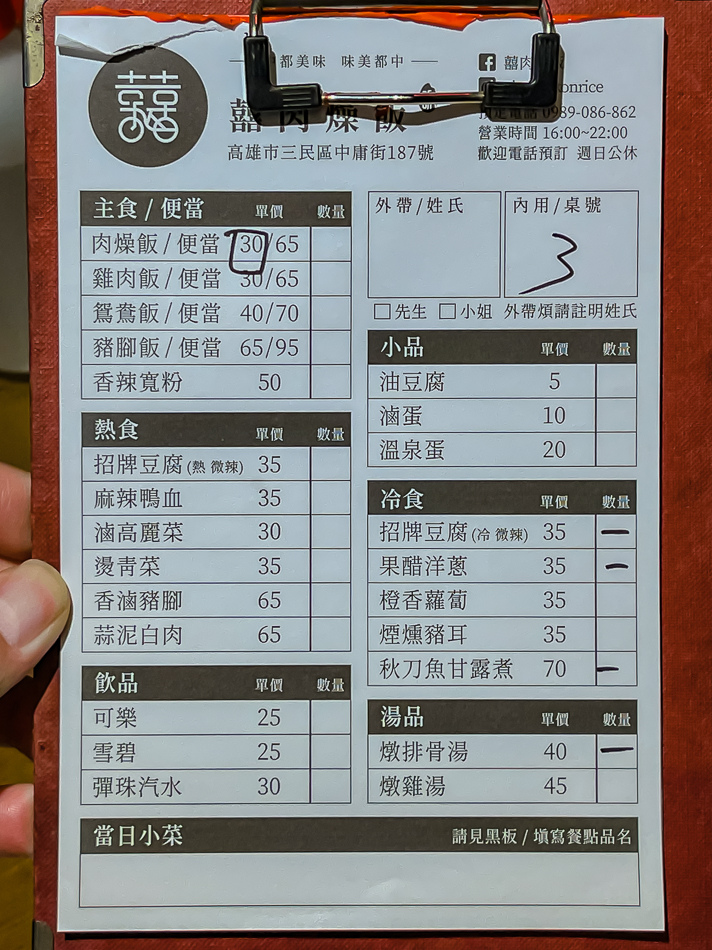 都美味 味美都中
囍肉燥飯
高雄市三民區中庸街187號
囍肉
onrice
預定電話 0989-086-862
營業時間 16:00~22:00
歡迎電話預訂 週日公休
主食/便當 單價 數量
肉燥飯/便當 30/65
雞肉飯/便當 30/65
鴛鴦飯/便當 40/70
豬腳飯/便當 65/95
香辣寬粉 50
熱食 單價 數量
招牌豆腐(熱 微辣) 35
麻辣鴨血 35
滷高麗菜 30
燙青菜 35
香滷豬腳 65
蒜泥白肉 65
飲品 單價 數量
可樂 25
雪碧 25
彈珠汽水 30
外帶/姓氏
內用/桌號
3
先生 小姐 外帶煩請註明姓氏
小品 單價 數量
油豆腐 5
滷蛋 10
溫泉蛋 20
冷食 單價 數量
招牌豆腐(冷 微辣) 35 一
果醋洋蔥 35 一
橙香蘿蔔 35
煙燻豬耳 35
秋刀魚甘露煮 70 一
湯品 單價 數量
燉排骨湯 40 一
燉雞湯 45
當日小菜 請見黑板/填寫餐點品名